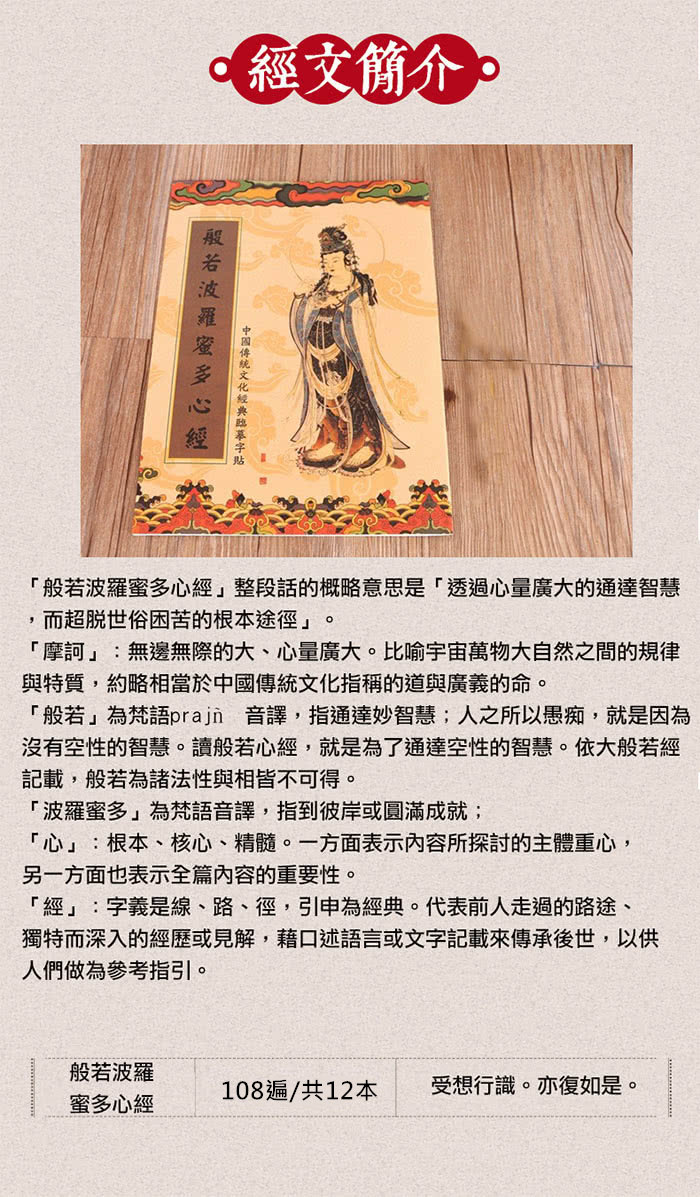 經文簡介
般若波羅蜜多心經
中國傳統文化經典臨摹字貼
「般若波羅蜜多心經」整段話的概略意思是「透過心量廣大的通達智慧
，而超脱世俗困苦的根本途徑」。
「摩訶」：無邊無際的大、心量廣大。比喻宇宙萬物大自然之間的規律
與特質，約略相當於中國傳統文化指稱的道與廣義的命。
「般若」為梵語prajñ　音譯，指通達妙智慧；人之所以愚痴，就是因為
沒有空性的智慧。讀般若心經，就是為了通達空性的智慧。依大般若經
記載，般若為諸法性與相皆不可得。
「波羅蜜多」為梵語音譯，指到彼岸或圓滿成就；
「心」：根本、核心、精髓。一方面表示內容所探討的主體重心，
另一方面也表示全篇內容的重要性。
「經」：字義是線、路、徑，引申為經典。代表前人走過的路途、
獨特而深入的經歷或見解，藉口述語言或文字記載來傳承後世，以供
人們做為參考指引。
般若波羅
蜜多心經
108遍/共12本
受想行識。亦復如是。